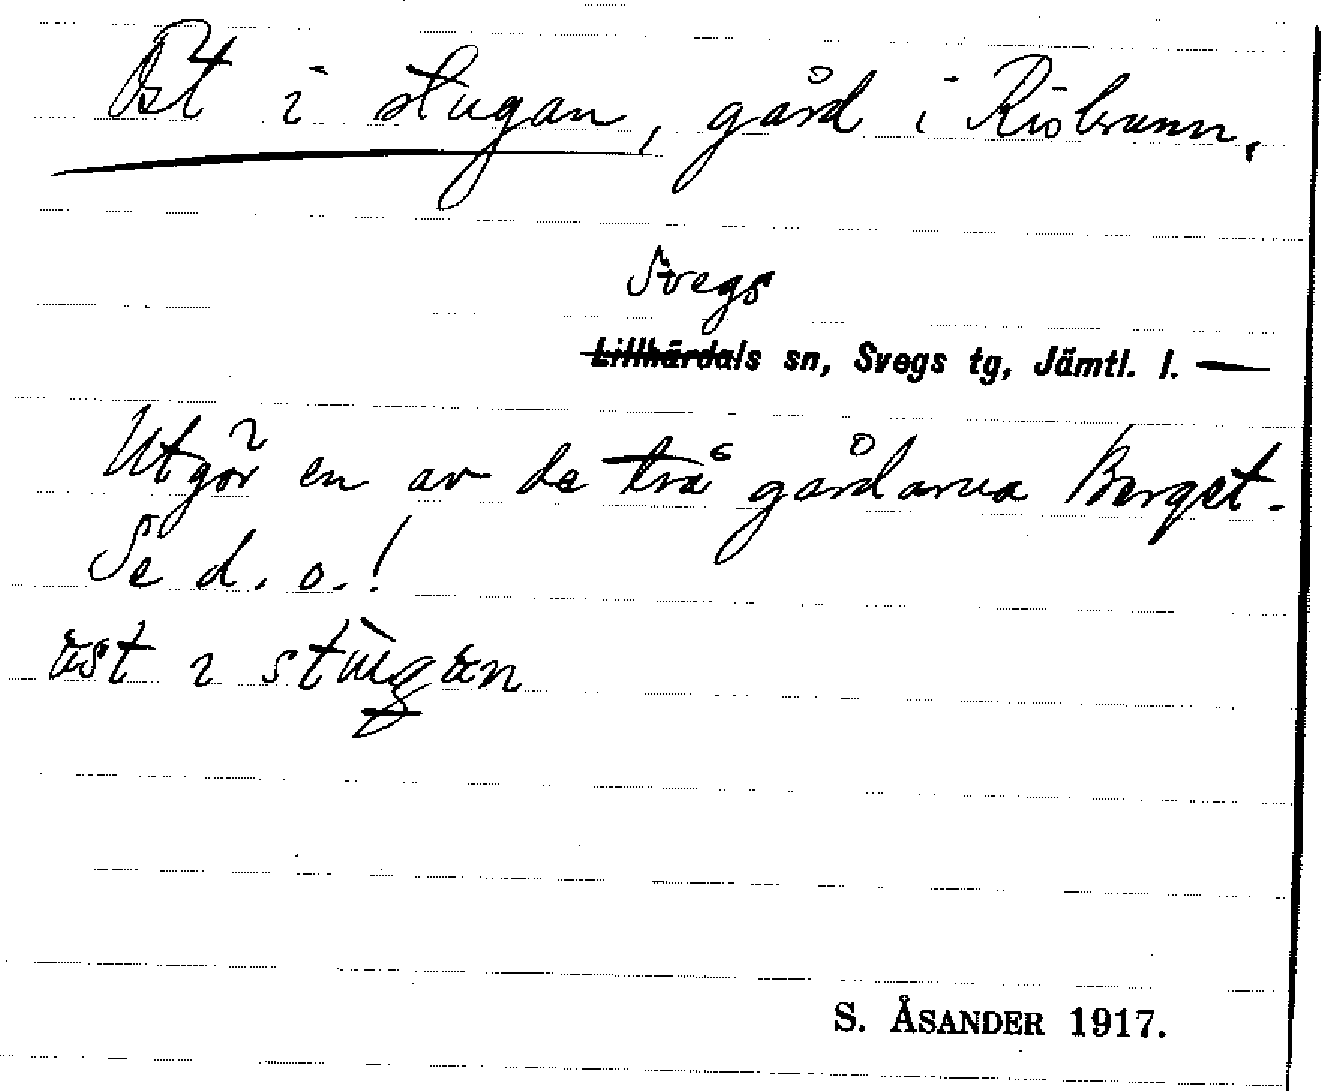 Öst i stugan, gård i Risbrunn,
Svegs
Lillhärdals sn, Svegs tg, Jämtl. l. —
Utgör en av de två gårdarna Berget.
Se d. o.!
öst i stùgan
S. ÅSANDER 1917.